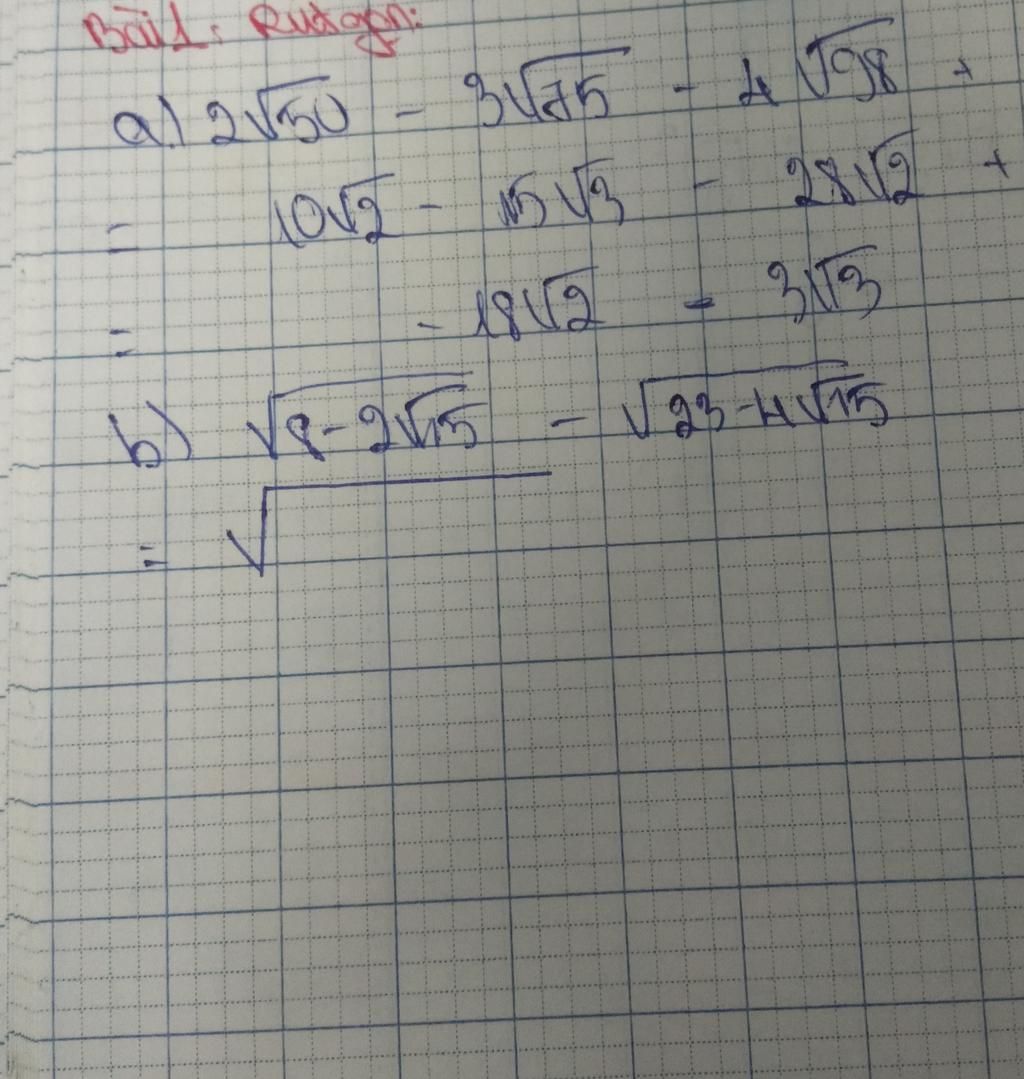 Bài 1: Rút gọn:
a) 2√50 - 3√75 - 4√98 +
= 10√2 - 15√3 - 28√2 +
= - 18√2 - 3√3
b) √(8-2√15) - √(23-4√15)
= √